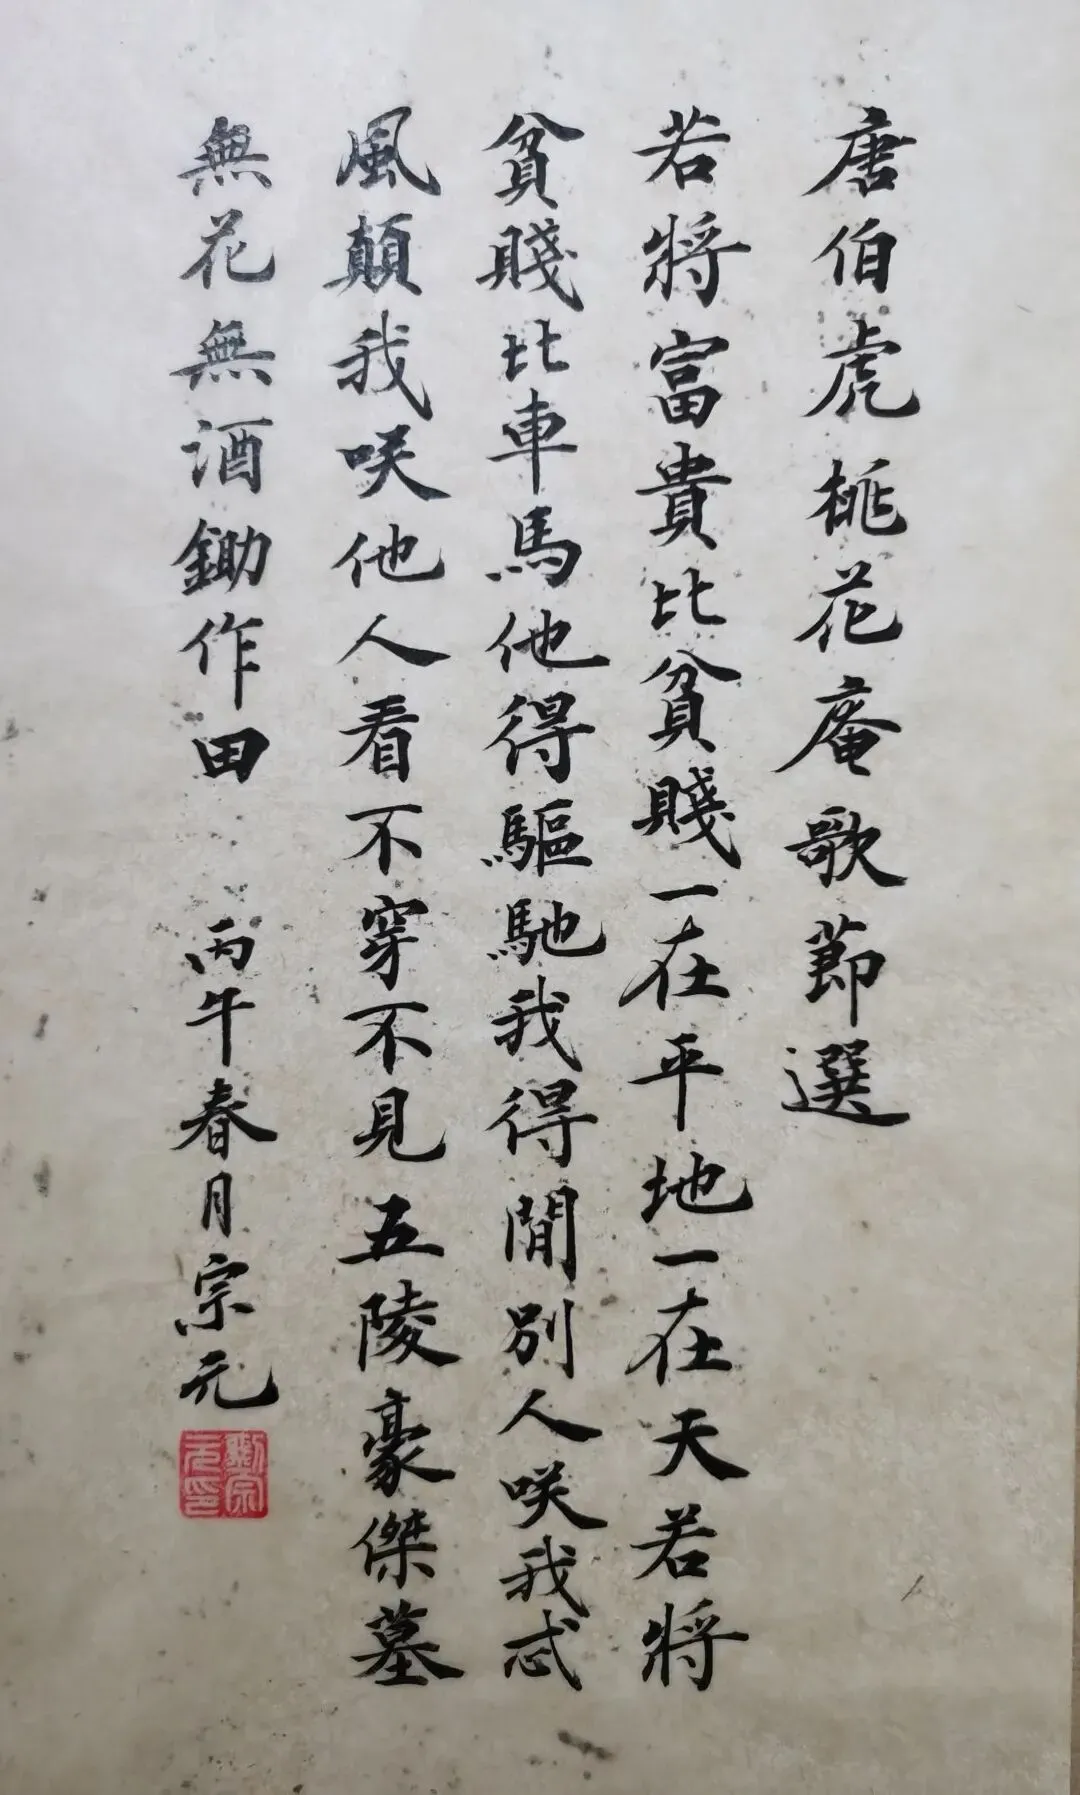 唐伯虎桃花庵歌節選
若將富貴比貧賤一在平地一在天若將
貧賤比車馬他得驅馳我得閒別人咲我忒
風顛我咲他人看不穿不見五陵豪傑墓
無花無酒鋤作田 丙午春月宗元
劉宗元印